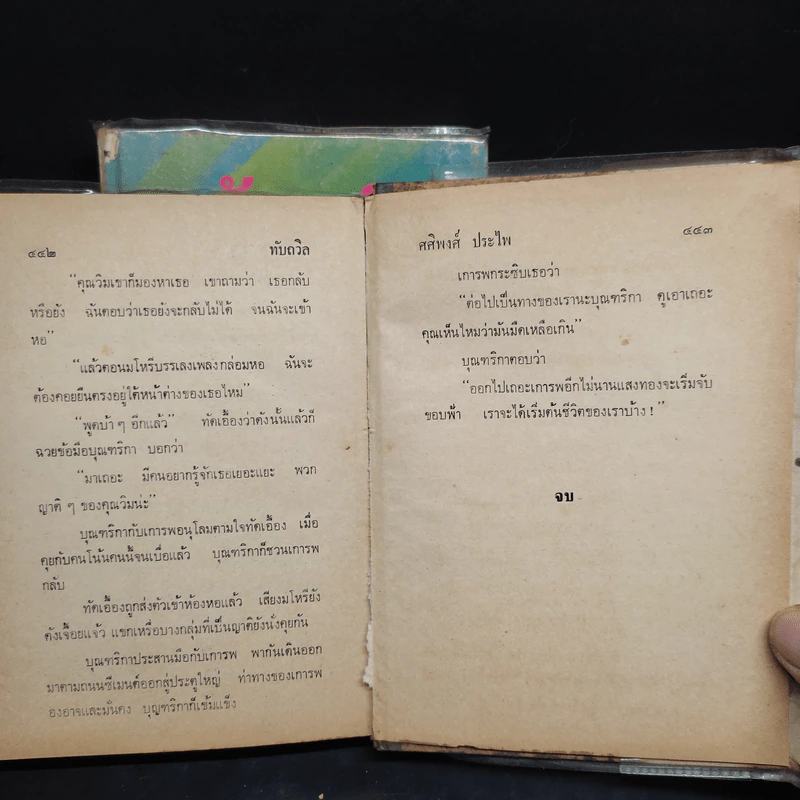 ๔๔๒ ทับถวิล
“คุณวิมเขาก็มองหาเธอ เขาถามว่า เธอกลับ
หรือยัง ฉันตอบว่าเธอยังจะกลับไม่ได้ จนฉันจะเข้า
หอ”
“แล้วตอนมโหรีบรรเลงเพลงกล่อมหอ ฉันจะ
ต้องคอยยืนตรงอยู่ใต้หน้าต่างของเธอไหม”
“พูดบ้า ๆ อีกแล้ว” ทัดเอื้องว่าดังนั้นแล้วก็
ฉวยข้อมือบุณฑริกา บอกว่า
“มาเถอะ มีคนอยากรู้จักเธอเยอะแยะ พวก
ญาติ ๆ ของคุณวิมน่ะ”
บุณฑริกากับเการพอนุโลมตามใจทัดเอื้อง เมื่อ
คุยกับคนโน้นคนนี้จนเบื่อแล้ว บุณฑริกาก็ชวนเการพ
กลับ
ทัดเอื้องถูกส่งตัวเข้าห้องหอแล้ว เสียงมโหรียัง
ดังเจื้อยแจ้ว แขกเหรื่อบางกลุ่มที่เป็นญาติยังนั่งคุยกัน
บุณฑริกาประสานมือกับเการพ พากันเดินออก
มาตามถนนซีเมนต์ออกสู่ประตูใหญ่ ท่าทางของเการพ
องอาจและมั่นคง บุญฑริกาก็เข้มแข็ง
ศศิพงศ์ ประไพ ๔๔๓
เการพกระซิบเธอว่า
“ต่อไปเป็นทางของเรานะบุณฑริกา ดูเอาเถอะ
คุณเห็นไหมว่ามันมืดเหลือเกิน”
บุณฑริกาตอบว่า
“ออกไปเถอะเการพอีกไม่นานแสงทองจะเริ่มจับ
ขอบฟ้า เราจะได้เริ่มต้นชีวิตของเราบ้าง !”
จบ